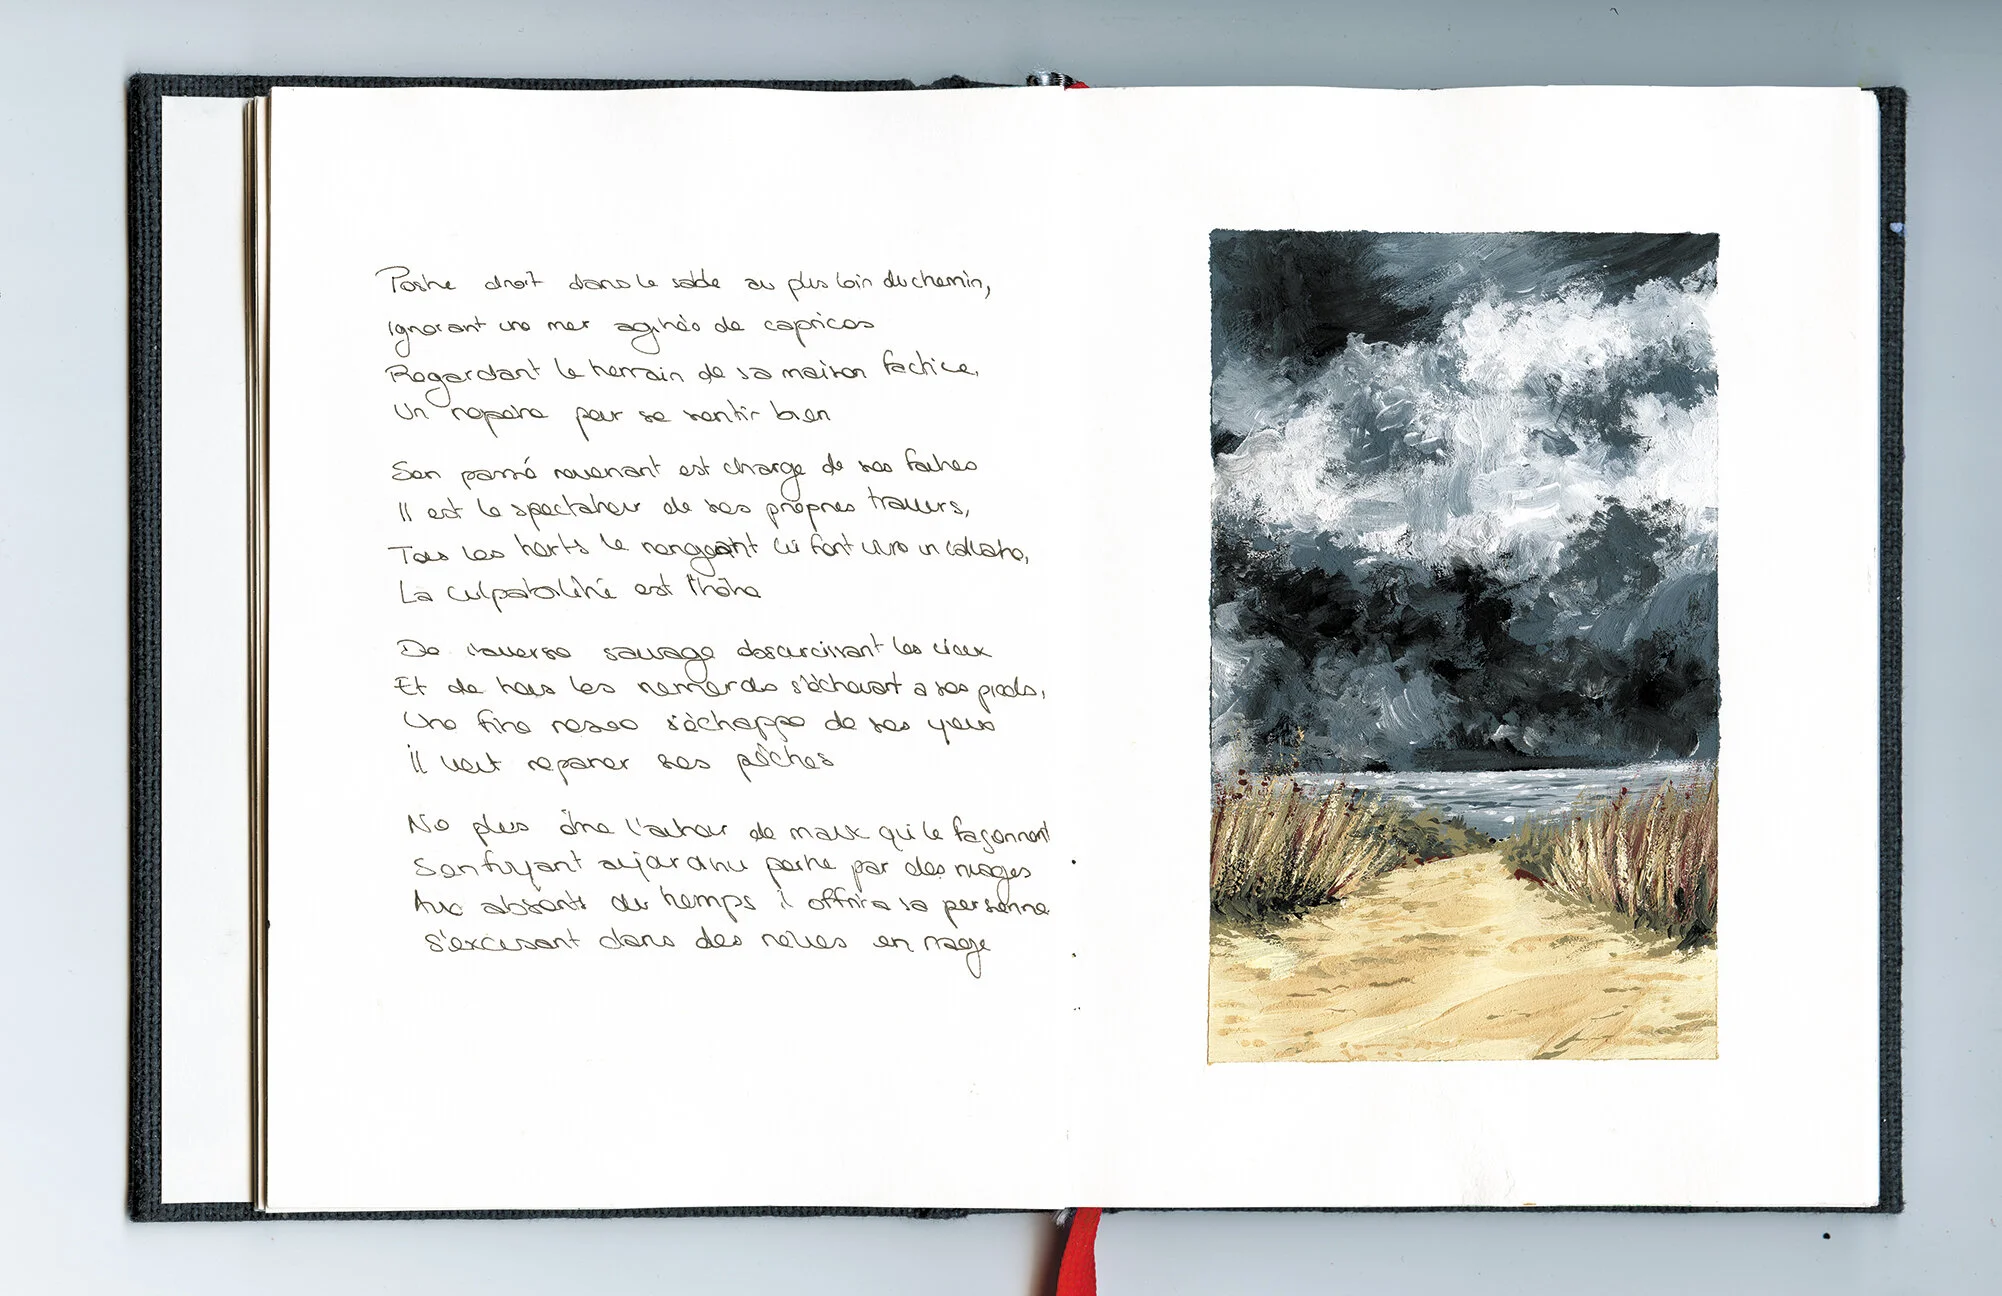 Posté droit dans le sable au plus loin du chemin,
Ignorant une mer agitée de caprices
Regardant le terrain de sa maison factice,
Un repaire pour se sentir bien
Son passé revenant est chargé de ses fautes
Il est le spectateur de ses propres travers,
Tous les torts le rongeant lui font vivre un calvaire,
La culpabilité est l'hôte
De l'averse sauvage obscurcissant les cieux
Et de tous les remords s'échouant a ses pieds,
Une fine rosée s'échappe de ses yeux
il veut reparer ses pêchés
Ne plus être l'auteur de maux qui le façonnent
S'enfuyant aujourd'hui porté par des nuages
Aux absents du temps il offrira sa personne
S'excusant dans des rêves en nage